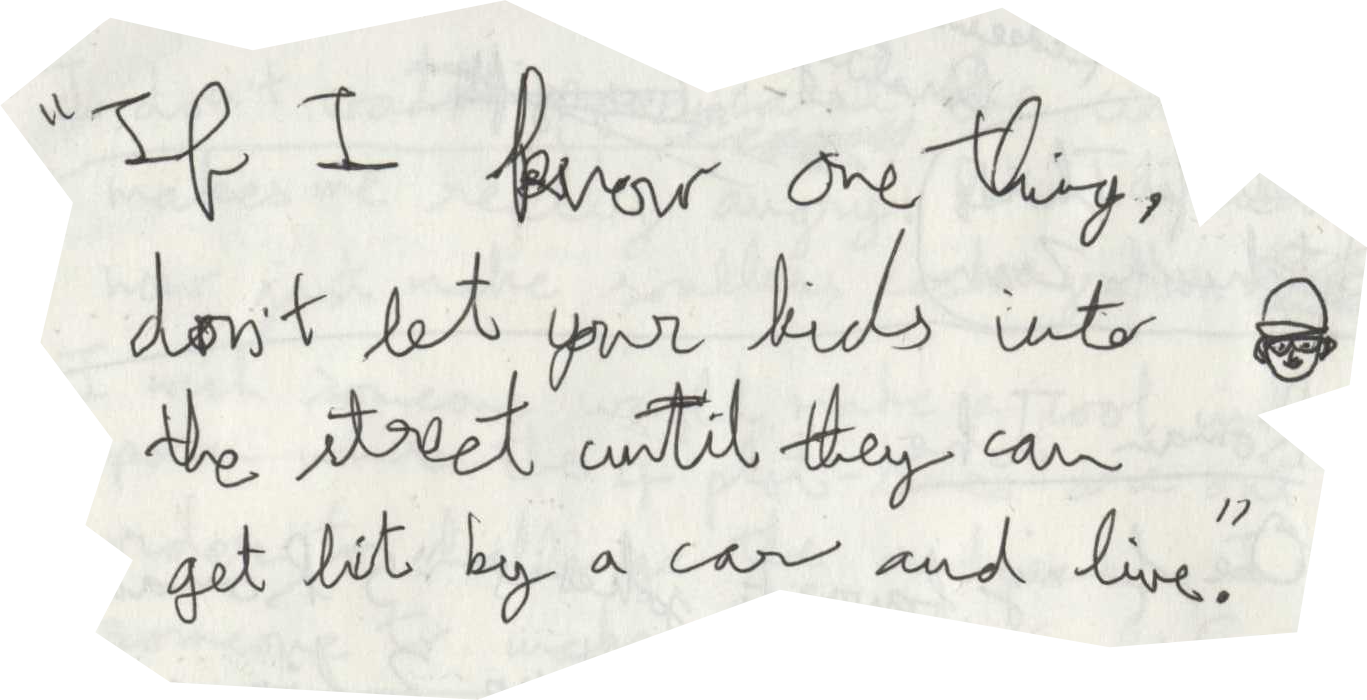 "If I know one thing,
don't let your kids into
the street until they can
get hit by a car and live."